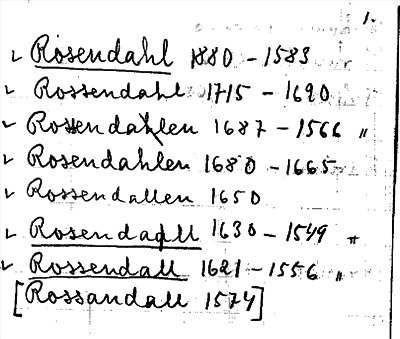 1.
Rosendahl 1880 - 1583
Rossendahl 1715 - 1690
Rosendahlen 1687 - 1566 "
Rosendahlen 1680 - 1665
Rossendallen 1650
Rosendall 1630 - 1549 "
Rossendall 1621 - 1556 "
[Rossandall 1574]